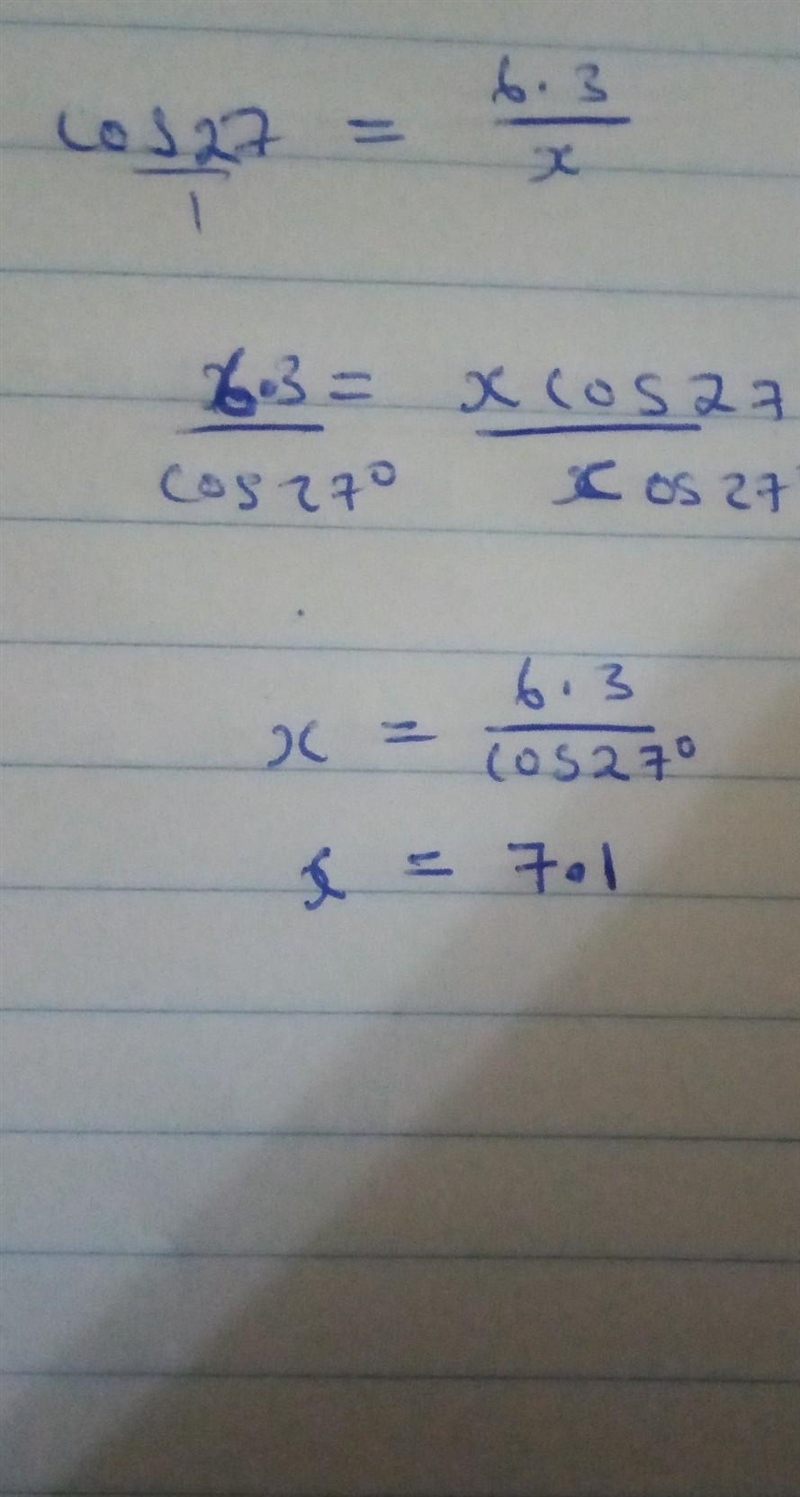 cos27 = 6.3
1 x
6.3 = x cos27
cos27° xos27
x = 6.3
cos27°
x = 7.1